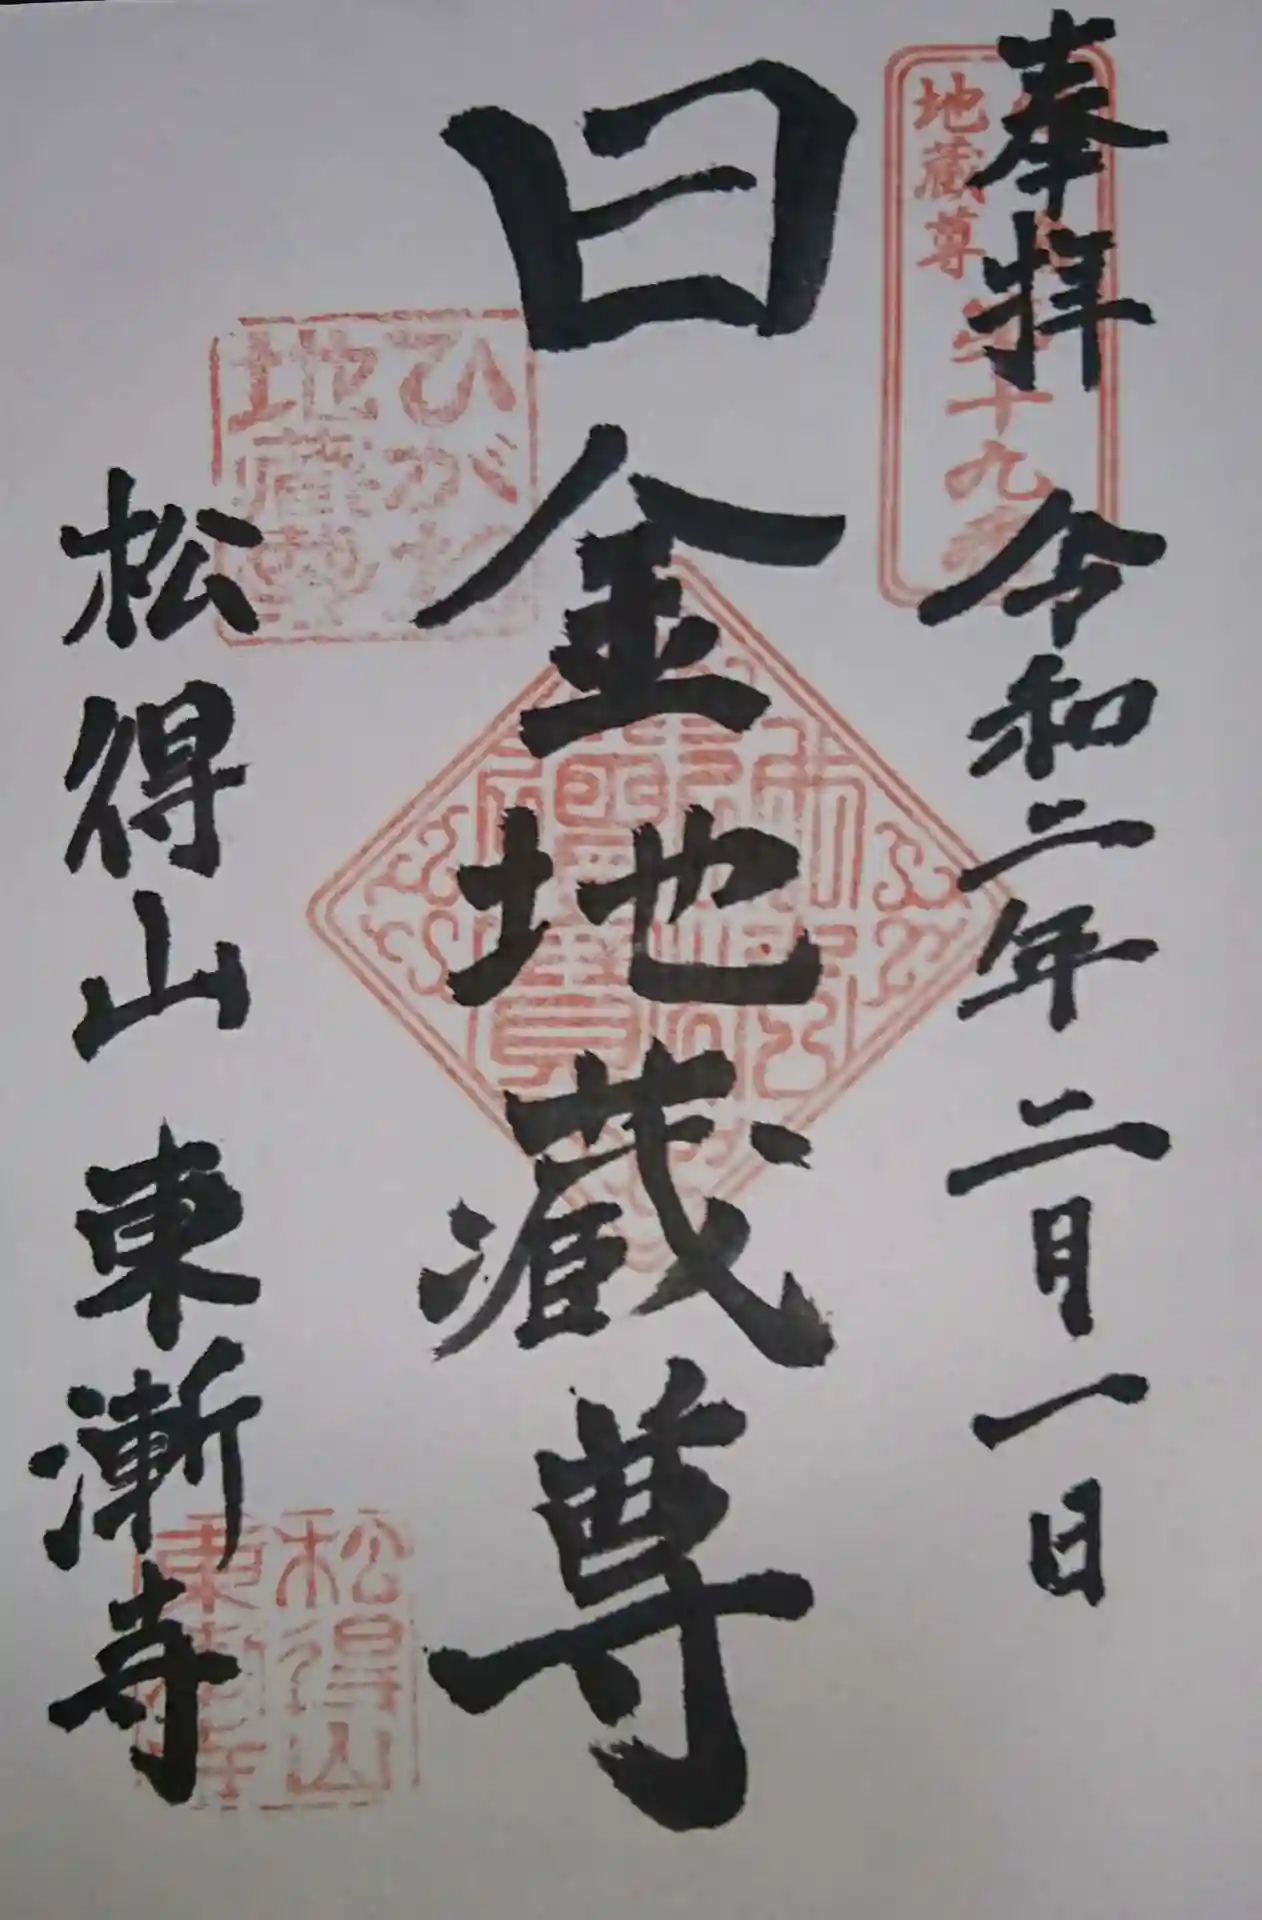 奉拝 令和二年 二月一日
地蔵尊
十九
日金地蔵尊
ひがね
地蔵尊
松得山 東漸寺
松得山
東漸寺